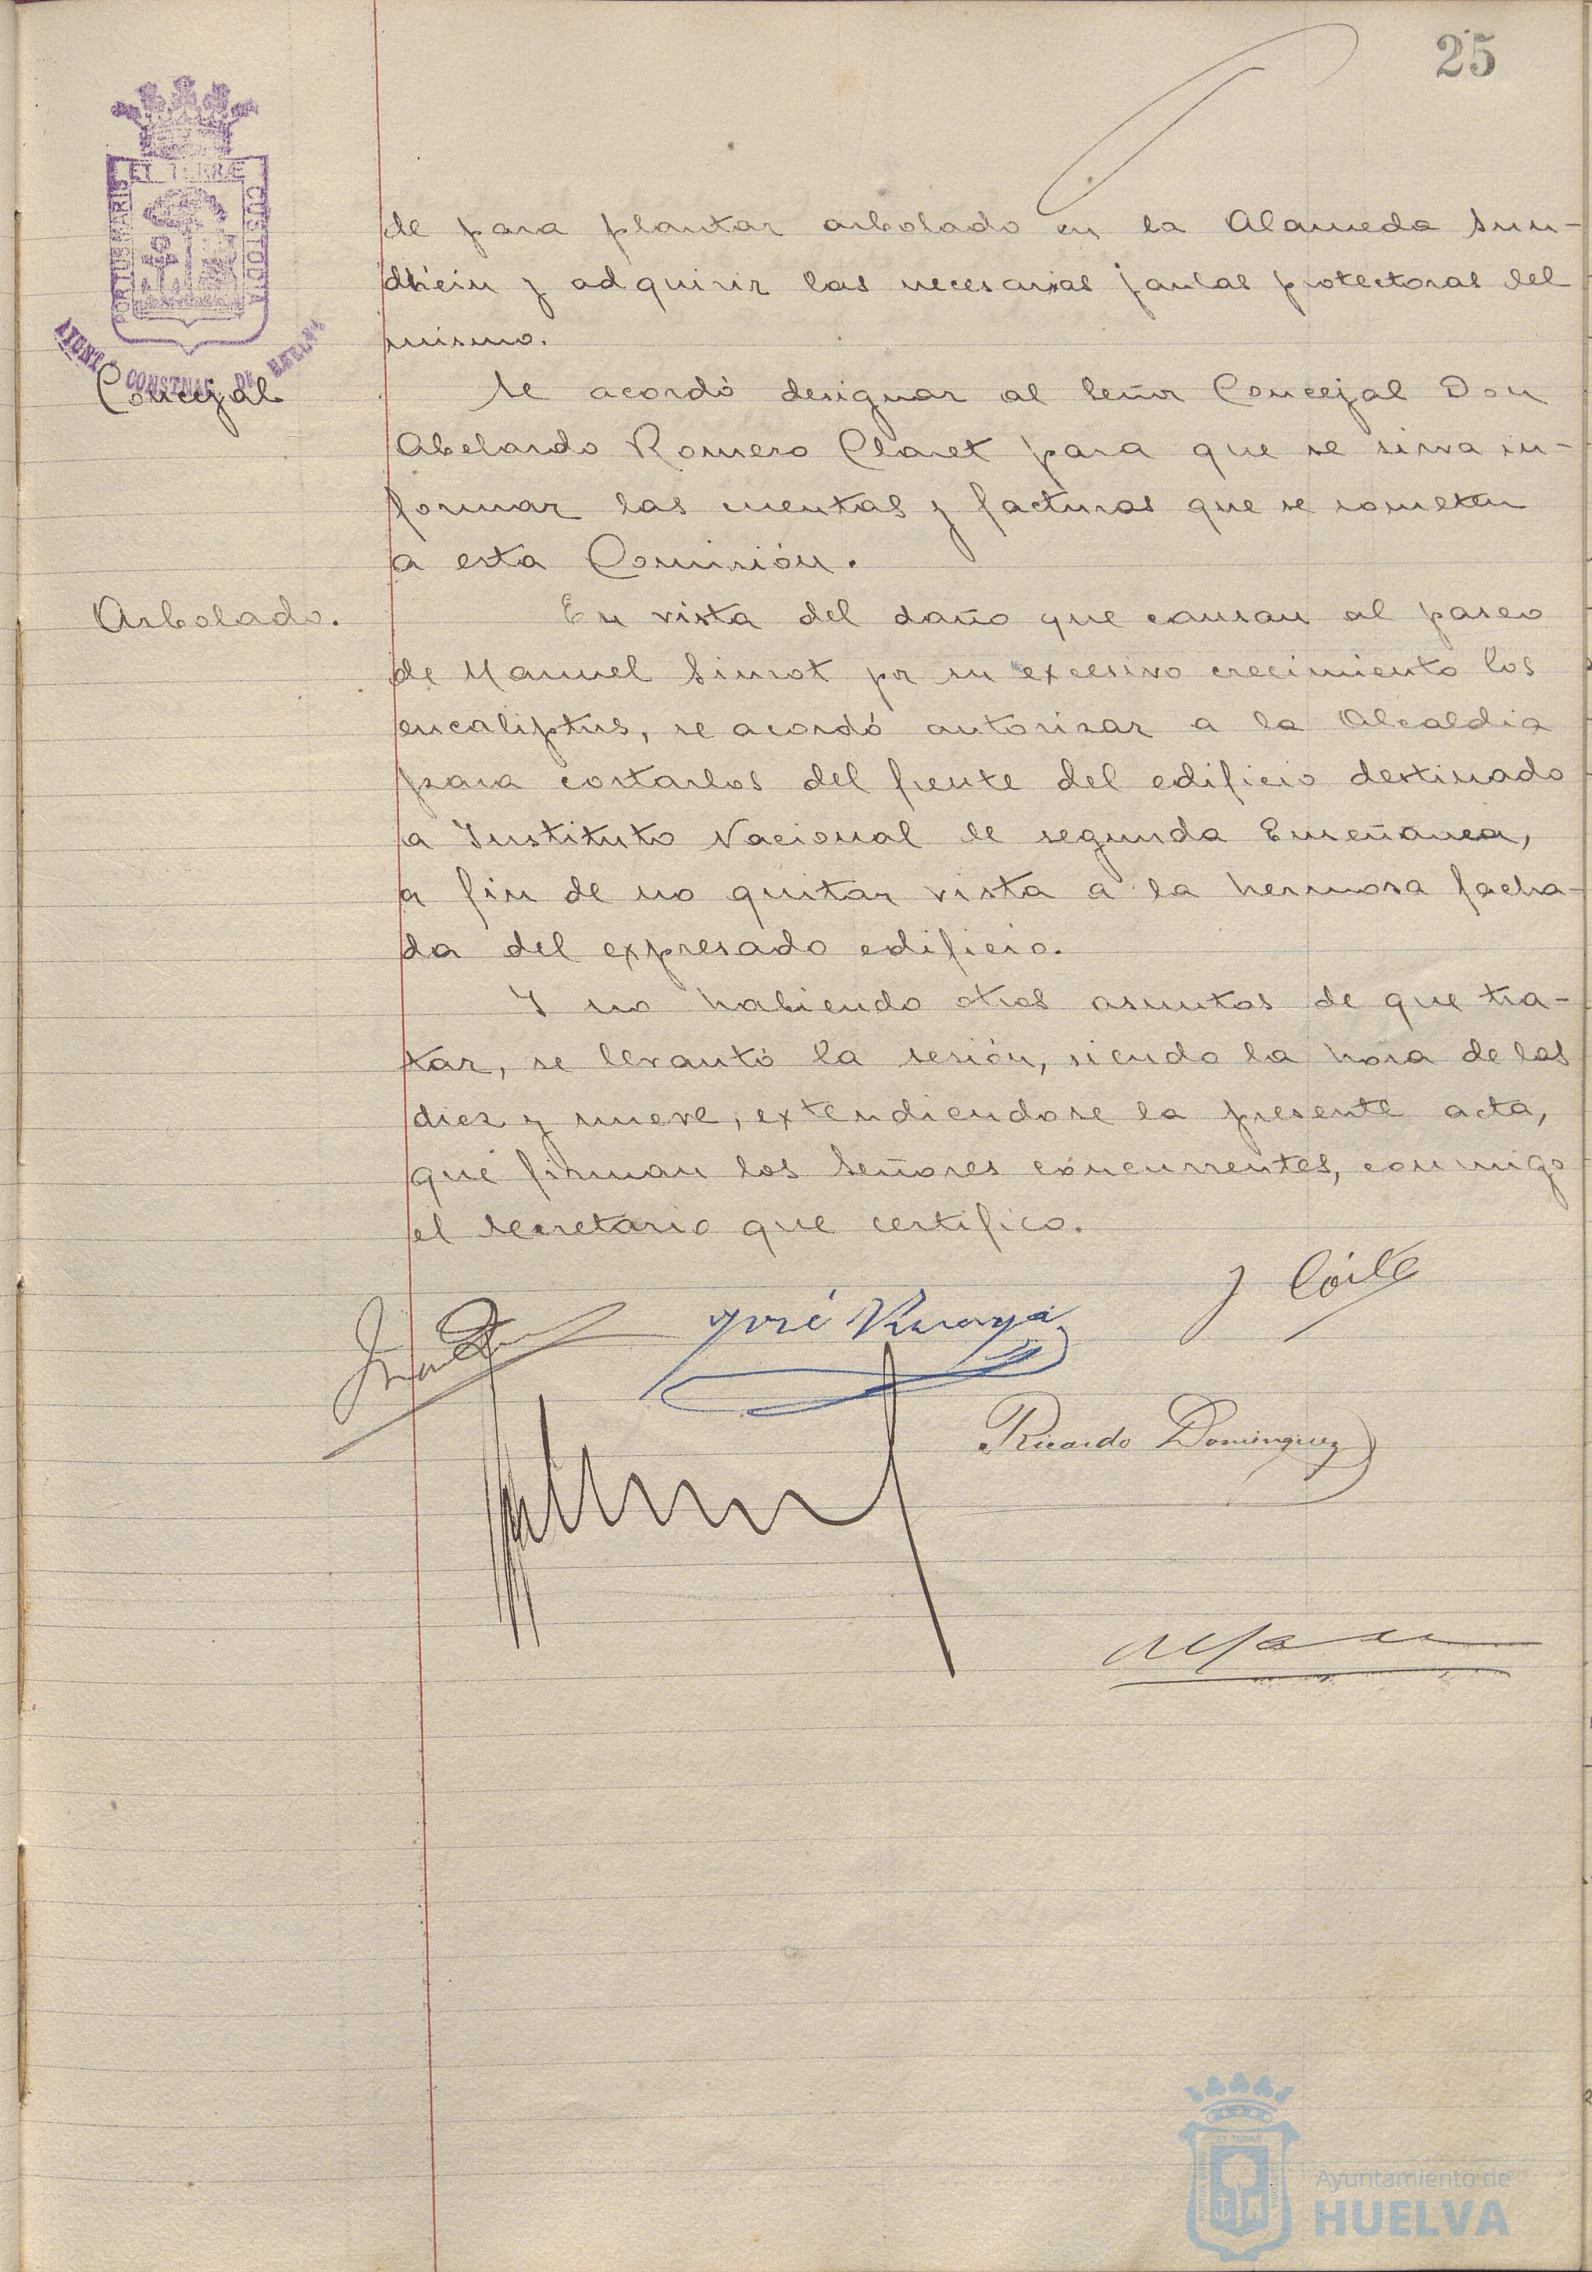 25
ET TERRÆ
PORTUS MARIS
CUSTODIA
AYUNTº CONSTNAL DE HUELVA
de para plantar arbolado en la Alameda Sun-
dhéin y adquirir las necesarias jaulas protectoras del
mismo.
Concejal
Se acordó designar al Señor Concejal Don
Abelardo Romero Claret para que se sirva in-
formar las cuentas y facturas que se sometan
a esta Comisión.
Arbolado.
En vista del daño que causan al paseo
de Manuel Siurot por su excesivo crecimiento los
eucaliptus, se acordó autorizar a la Alcaldia
para cortarlos del frente del edificio destinado
a Instituto Nacional de segunda Enseñanza,
a fin de no quitar vista a la hermosa facha-
da del expresado edificio.
Y no habiendo otros asuntos de que tra-
tar, se levantó la sesión, siendo la hora de las
diez y nueve, extendiendose la presente acta,
que firman los Señores concurrentes, conmigo
el secretario que certifico.
José
Ricardo Dominguez
ET TERRÆ
Ayuntamiento de
HUELVA